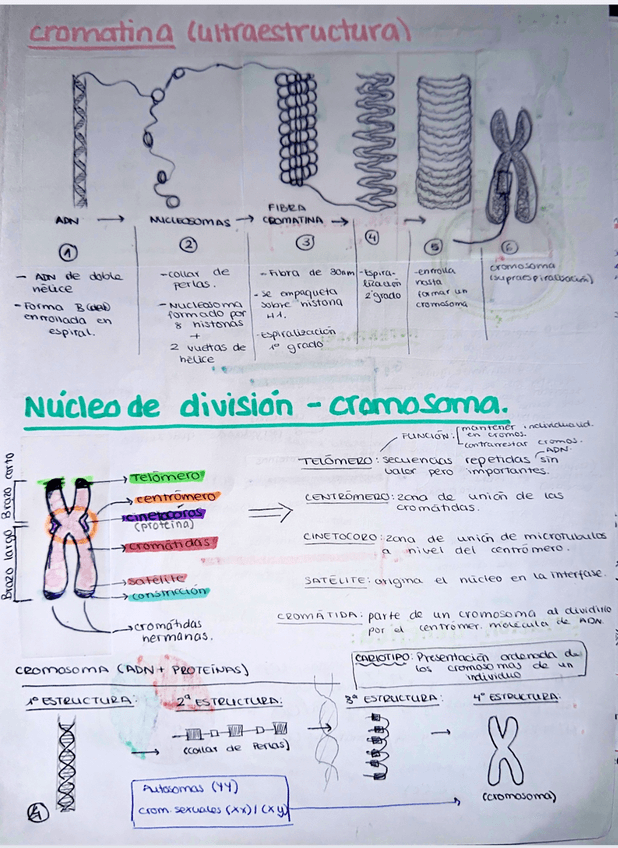 cromatina (ultraestructura)
ADN → NUCLEOSOMAS → FIBRA CROMATINA → →
① ② ③ ④ ⑤ ⑥
- ADN de doble
hélice
- Forma B
enrollada en
espiral.
- collar de
perlas.
- Nucleosoma
formado por
8 histonas
+
2 vueltas de
hélice
- Fibra de 30nm
- se empaqueta
sobre histona
H1.
- Espiralización
1º grado
- Espira-
lización
2º grado
- enrolla
hasta
formar un
cromosoma
cromosoma
(supraespiralización)
Núcleo de división - cromosoma.
Brazo corto
Brazo largo
Telómero
centrómero
cinetocoros
(proteína)
cromátidas
satélite
constricción
cromátidas
hermanas.
FUNCIÓN: mantener individualid.
en cromos.
contrarrestar cromos.
ADN
TELÓMERO: secuencias repetidas sin
valor pero importantes.
CENTRÓMERO: zona de unión de las
cromátidas.
CINETOCORO: zona de unión de microtubulos
a nivel del centrómero.
SATÉLITE: origina el núcleo en la interfase.
CROMÁTIDA: parte de un cromosoma al dividirlo
por el centrómer. molécula de ADN.
CARIOTIPO: Presentación ordenada de
los cromosomas de un
individuo
CROMOSOMA (ADN + PROTEÍNAS)
1ª ESTRUCTURA: 2ª ESTRUCTURA: 3ª ESTRUCTURA: 4ª ESTRUCTURA:
(collar de Perlas)
(cromosoma)
Autosomas (YY)
crom. sexuales (xx) / (xy)